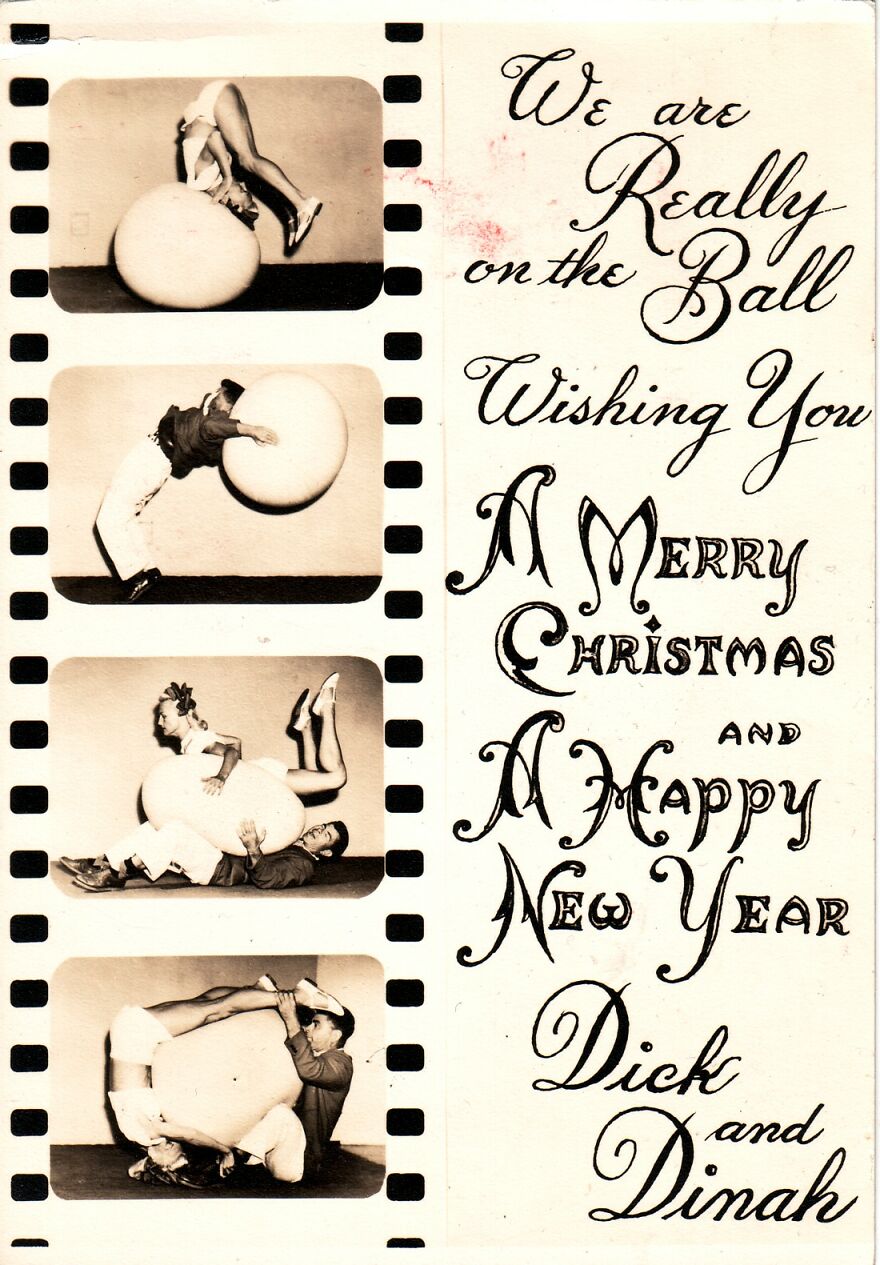 We are
Really
on the Ball
Wishing You
A Merry
Christmas
and
A Happy
New Year
Dick
and
Dinah